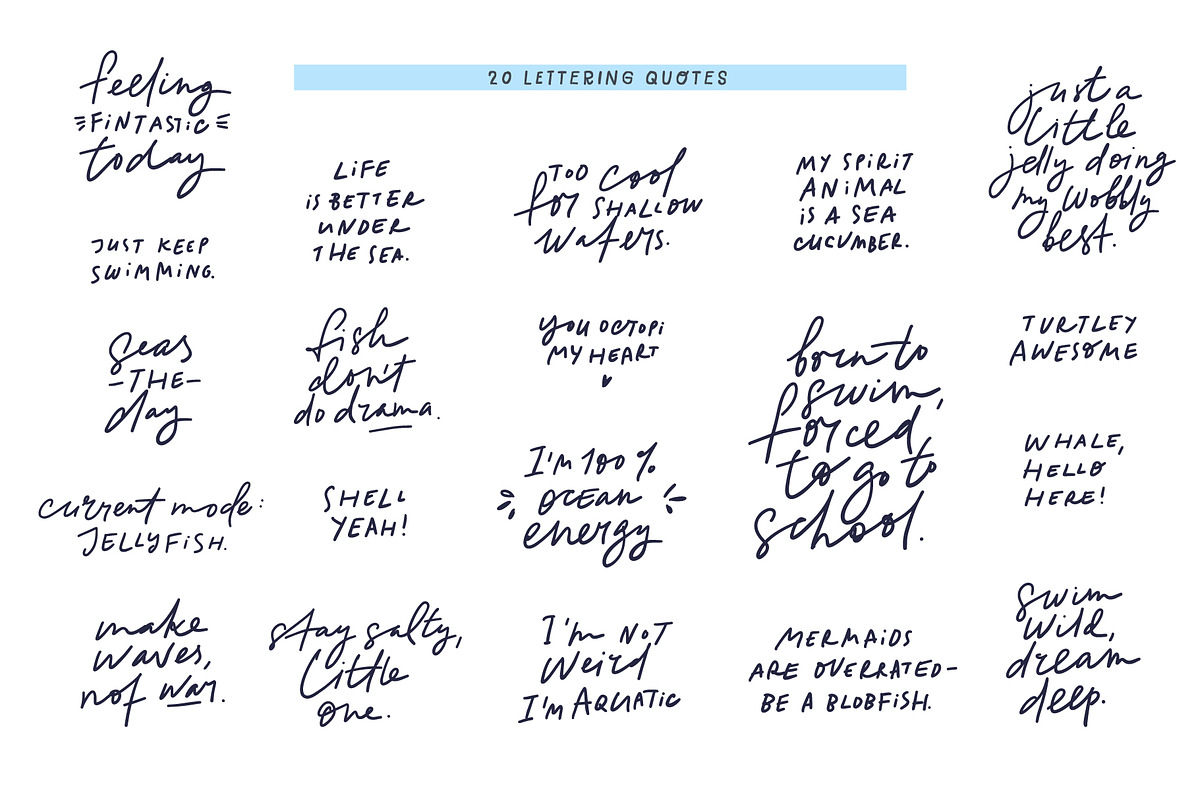 20 LETTERING QUOTES
feeling
FiNTASTiC
today
JUST KEEP
SWiMMiNG.
seas
-THE-
day
current mode:
JELLYFiSH.
make
waves,
not war.
LiFE
iS BETTER
UNDER
THE SEA.
fish
don't
do drama.
SHELL
YEAH!
stay salty,
little
one.
TOO cool
for SHALLOW
waters.
you OCTOPi
MY HEART
I'm 100 %
OCEAN
energy
I'm NOT
weird
I'M AQUATiC
MY SPiRiT
ANiMAL
iS A SEA
CUCUMBER.
born to
swim,
forced
to go to
school.
MERMAiDS
ARE OVERRATED-
BE A BLOBFiSH.
just a
little
jelly doing
my wobbly
best.
TURTLEY
AWESOME
WHALE,
HELLO
HERE!
swim
wild,
dream
deep.